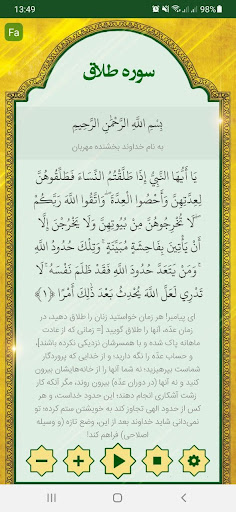 13:49
98%
Fa
سوره طلاق
بِسْمِ اللَّهِ الرَّحْمَٰنِ الرَّحِيمِ
به نام خداوند بخشنده مهربان
يَا أَيُّهَا النَّبِيُّ إِذَا طَلَّقْتُمُ النِّسَاءَ فَطَلِّقُوهُنَّ
لِعِدَّتِهِنَّ وَأَحْصُوا الْعِدَّةَ ۖ وَاتَّقُوا اللَّهَ رَبَّكُمْ
ۖ لَا تُخْرِجُوهُنَّ مِنْ بُيُوتِهِنَّ وَلَا يَخْرُجْنَ إِلَّا
أَنْ يَأْتِينَ بِفَاحِشَةٍ مُبَيِّنَةٍ ۚ وَتِلْكَ حُدُودُ اللَّهِ
ۚ وَمَنْ يَتَعَدَّ حُدُودَ اللَّهِ فَقَدْ ظَلَمَ نَفْسَهُ ۚ لَا
تَدْرِي لَعَلَّ اللَّهَ يُحْدِثُ بَعْدَ ذَٰلِكَ أَمْرًا ﴿١﴾
ای پیامبر! هر زمان خواستید زنان را طلاق دهید، در
زمان عدّه، آنها را طلاق گویید [= زمانی که از عادت
ماهانه پاک شده و با همسرشان نزدیکی نکرده باشند]،
و حساب عدّه را نگه دارید؛ و از خدایی که پروردگار
شماست بپرهیزید؛ نه شما آنها را از خانه‌هایشان بیرون
کنید و نه آنها (در دوران عدّه) بیرون روند، مگر آنکه کار
زشت آشکاری انجام دهند؛ این حدود خداست، و هر
کس از حدود الهی تجاوز کند به خویشتن ستم کرده؛ تو
نمی‌دانی شاید خداوند بعد از این، وضع تازه (و وسیله
اصلاحی) فراهم کند!